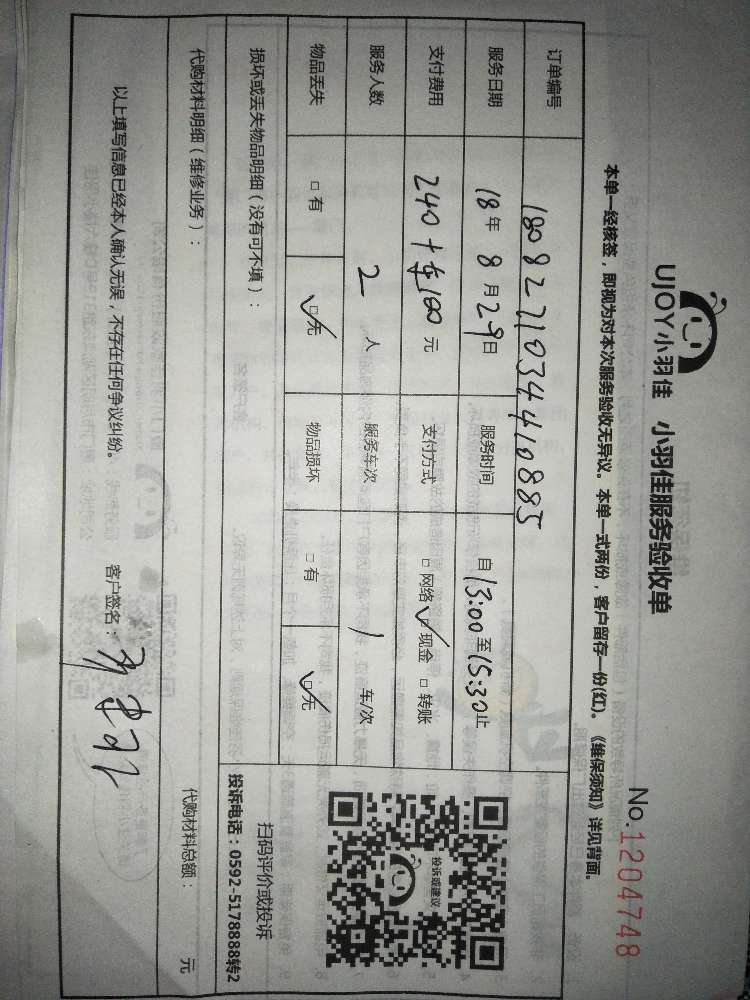 UJOY小羽佳 小羽佳服务验收单
No.1204748
本单一经核签，即视为对本次服务验收无异议。本单一式两份，客户留存一份(红)。《维保须知》详见背面。
订单编号 180827103444410885
服务日期 18年8月29日 服务时间 自13:00至15:30止
支付费用 240+车100元 支付方式 □网络 ☑现金 □转账
服务人数 2人 服务车次 1车/次
物品丢失 □有 ☑无 物品损坏 □有 ☑无
投诉或建议
扫码评价或投诉
投诉电话：0592-5178888转2
损坏或丢失物品明细（没有可不填）：
代购材料明细（维修业务）： 代购材料总额： 元
以上填写信息已经本人确认无误，不存在任何争议纠纷。 客户签名：